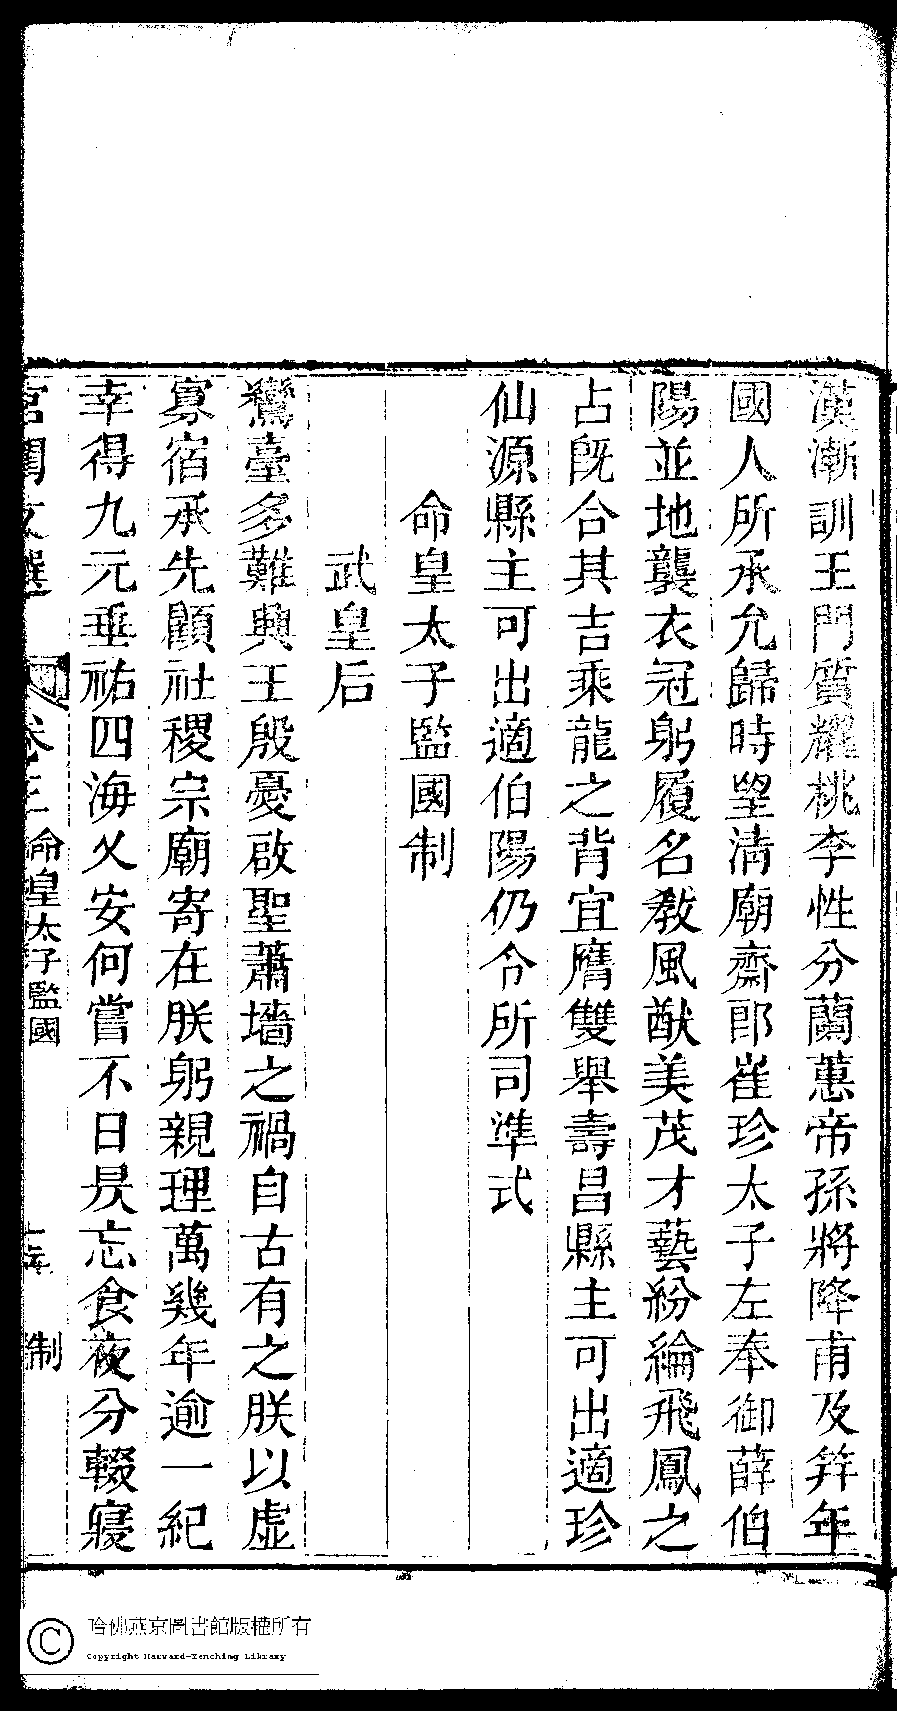 漢漸訓王門質耀桃李性分蘭蕙帝孫將降甫及笄年
國人所承允歸時望清廟齋郎崔珍太子左奉御薛伯
陽並地襲衣冠躬履名教風猷美茂才藝紛綸飛鳳之
占既合其吉乘龍之背宜膺雙舉壽昌縣主可出適珍
仙源縣主可出適伯陽仍令所司準式
命皇太子監國制
武皇后
鸞臺多難興王殷憂啟聖蕭墻之禍自古有之朕以虛
寡宿承先顧社稷宗廟寄在朕躬親理萬幾年逾一紀
幸得九元垂祐四海乂安何嘗不日昃忘食夜分輟寢
宮閨文選 卷三 命皇太子監國制
哈佛燕京圖書館版權所有
Copyright Harvard-Yenching Library